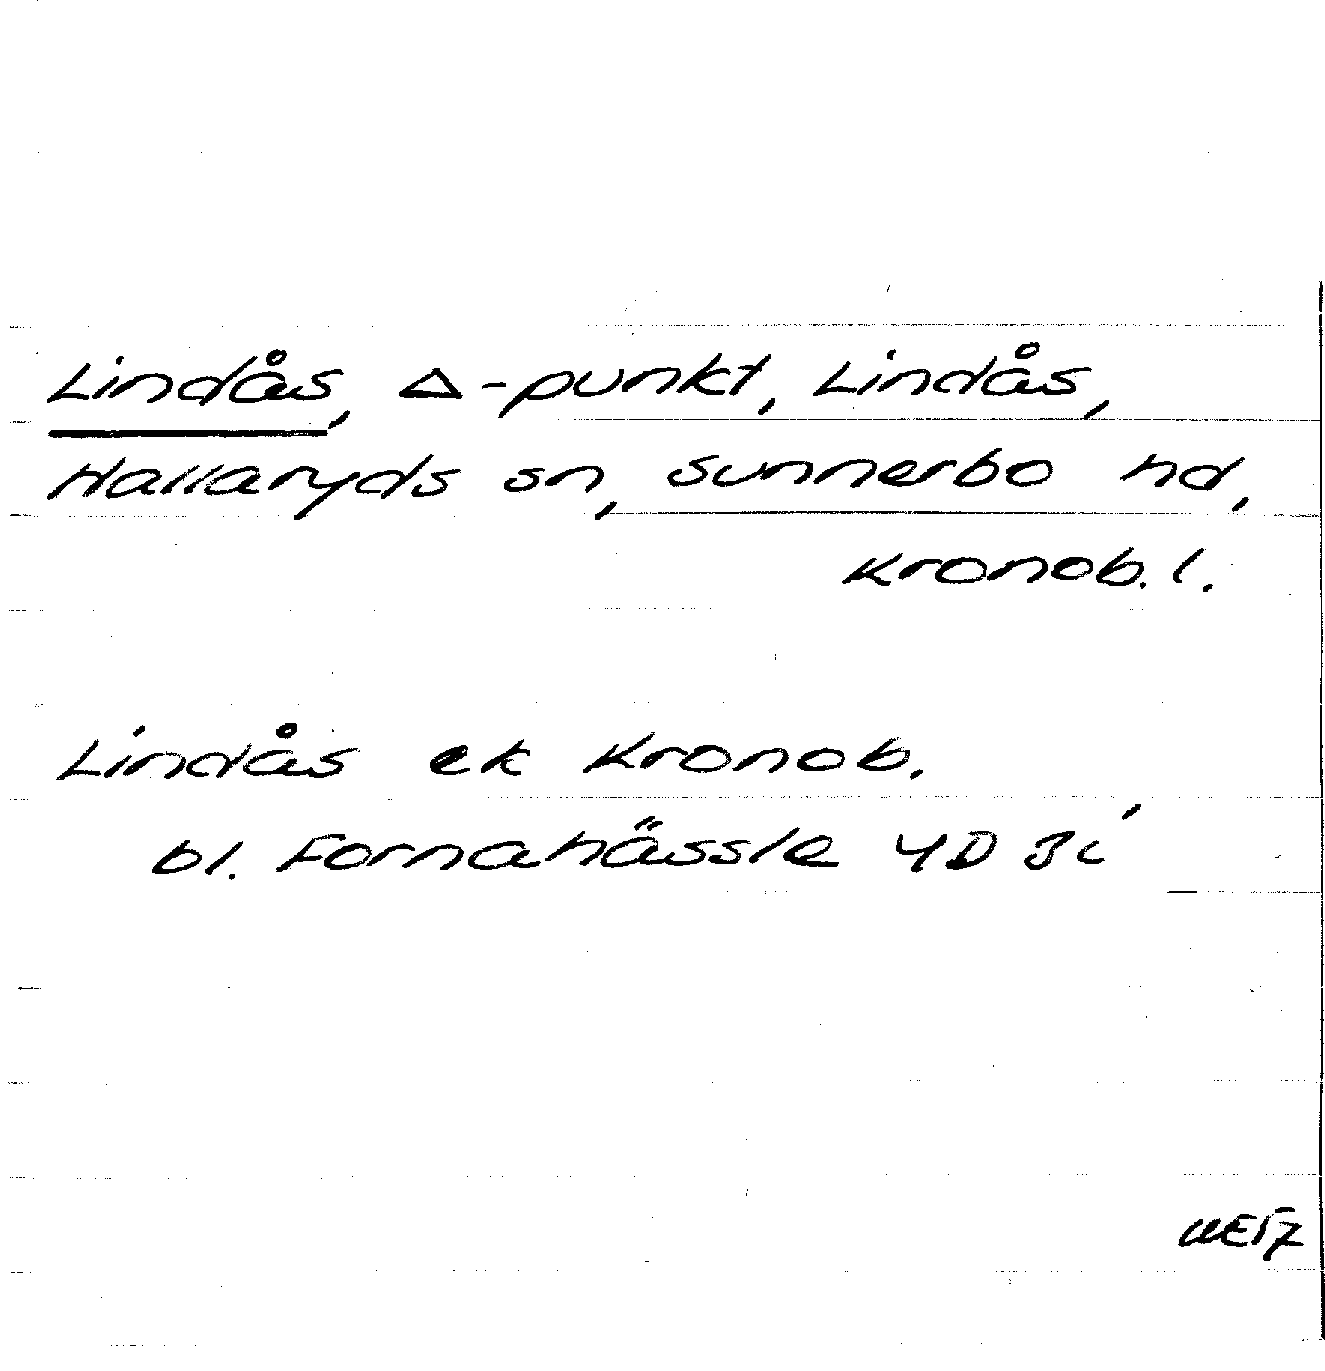 Lindås, Δ-punkt, Lindås,
Hallaryds sn, Sunnerbo hd,
Kronob. l.
Lindås ek Kronob.
bl. Fornahässle 4D 3i